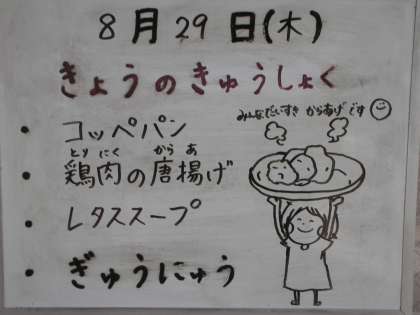 8月29日(木)
きょうのきゅうしょく
みんなだいすき からあげ です
・コッペパン
とり にく から あ
・鶏肉の唐揚げ
・レタススープ
・ぎゅうにゅう